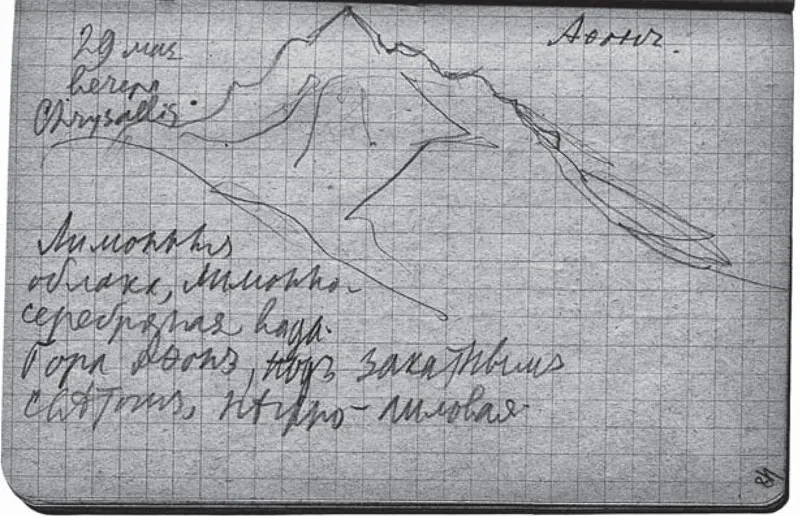 Аѳонъ.
29 мая
вечера
Chrysallis.
Лимонныя
облака, лимонно-
серебряная вода.
Гора Аѳонъ, подъ закатнымъ
свѣтомъ, нѣжно-лиловая.